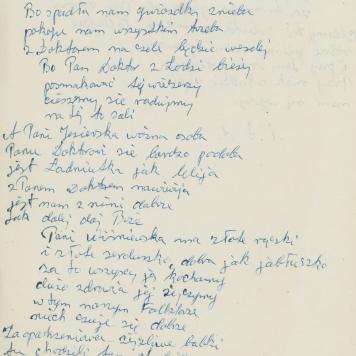 Bo spadła nam gwiazdka z nieba
pokoju nam wszystkim trzeba
z Doktorem na czele będzie weselej
Bo Pan Doktor z Łodzi bieży
posmakować tej wieczerzy
cieszymy się radujmy
na tej to sali
A Pani Jezierska ważna osoba
Panu Doktorowi się bardzo podoba
jest ładniutka jak lilija
z Panem Doktorem
jest nam z nimi dobrze
Tak dalej daj Boże
Pani Wiśniewska ma złote rączki
i złote serduszko, dobra jak jabłuszko
za to wszyscy ją kochamy
dużo zdrowia jej życzymy
w tym naszym Folklorze
niech czuje się dobrze
życzliwe babki